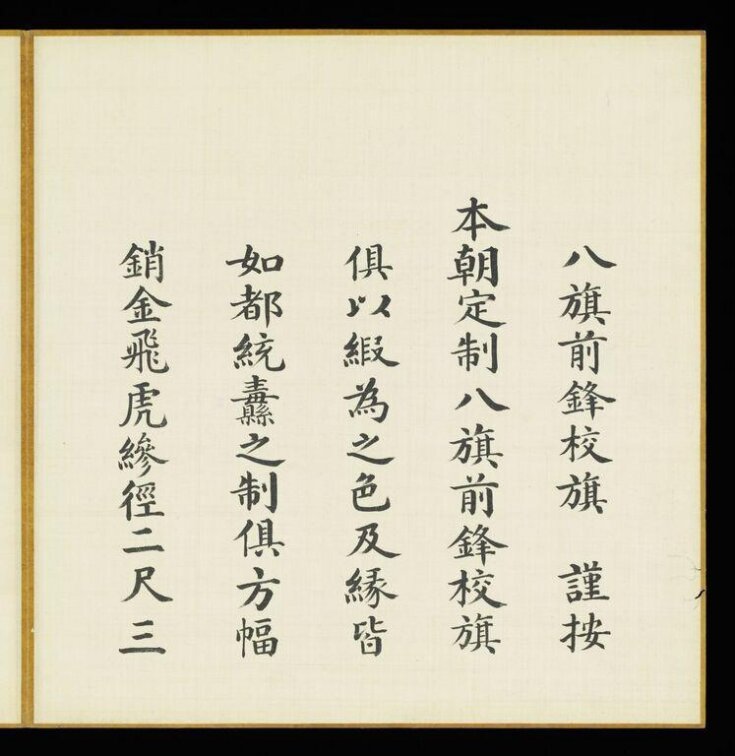 八旗前鋒校旗　謹按
本朝定制八旗前鋒校旗
俱以緞為之色及緣皆
如都統纛之制俱方幅
銷金飛虎縿徑二尺三